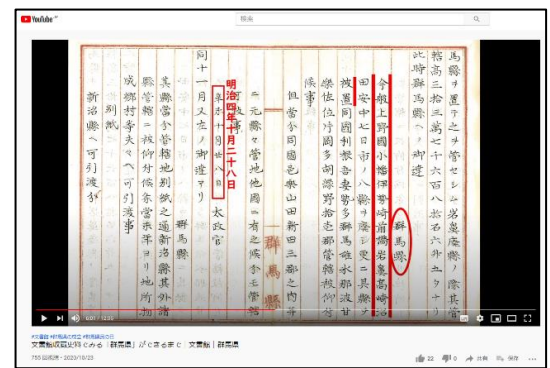 YouTube
検索
馬縣ヲ置テ之ヲ管セシム岩鼻廃縣ノ除其管
轄高三拾三萬七千六百八拾石六斗五夕ナリ
此時群馬縣ヘノ御達
群馬縣
今般上野國小幡伊勢崎前橋岩鼻髙崎沼
田安中七日市ノ八縣ヲ廃シ更ニ其縣ヲ
被置同國利根吾妻勢多群馬碓氷那波甘
樂佐位片岡多胡緑野拾壱郡管轄被仰付
候事
但當分同國邑樂山田新田三郡之内并
ニ元縣々管地他國ニ有之候分モ管轄
可致事
明治四年十月二十八日
辛未十月廿八日
太政官
同十一月又左ノ御達アリ
群馬縣
其縣當分管轄地別紙之通新治縣其外諸
縣管轄ニ被仰付候條當未年ヨリ地所物
成郷村等夫々ヘ可引渡事
別紙
新治縣ヘ可引渡分
群馬縣
0:07 / 12:05
文書館収蔵史料でみる「群馬県」ができるまで｜文書館｜群馬県
755 回視聴・2020/10/23
22
0
共有
保存